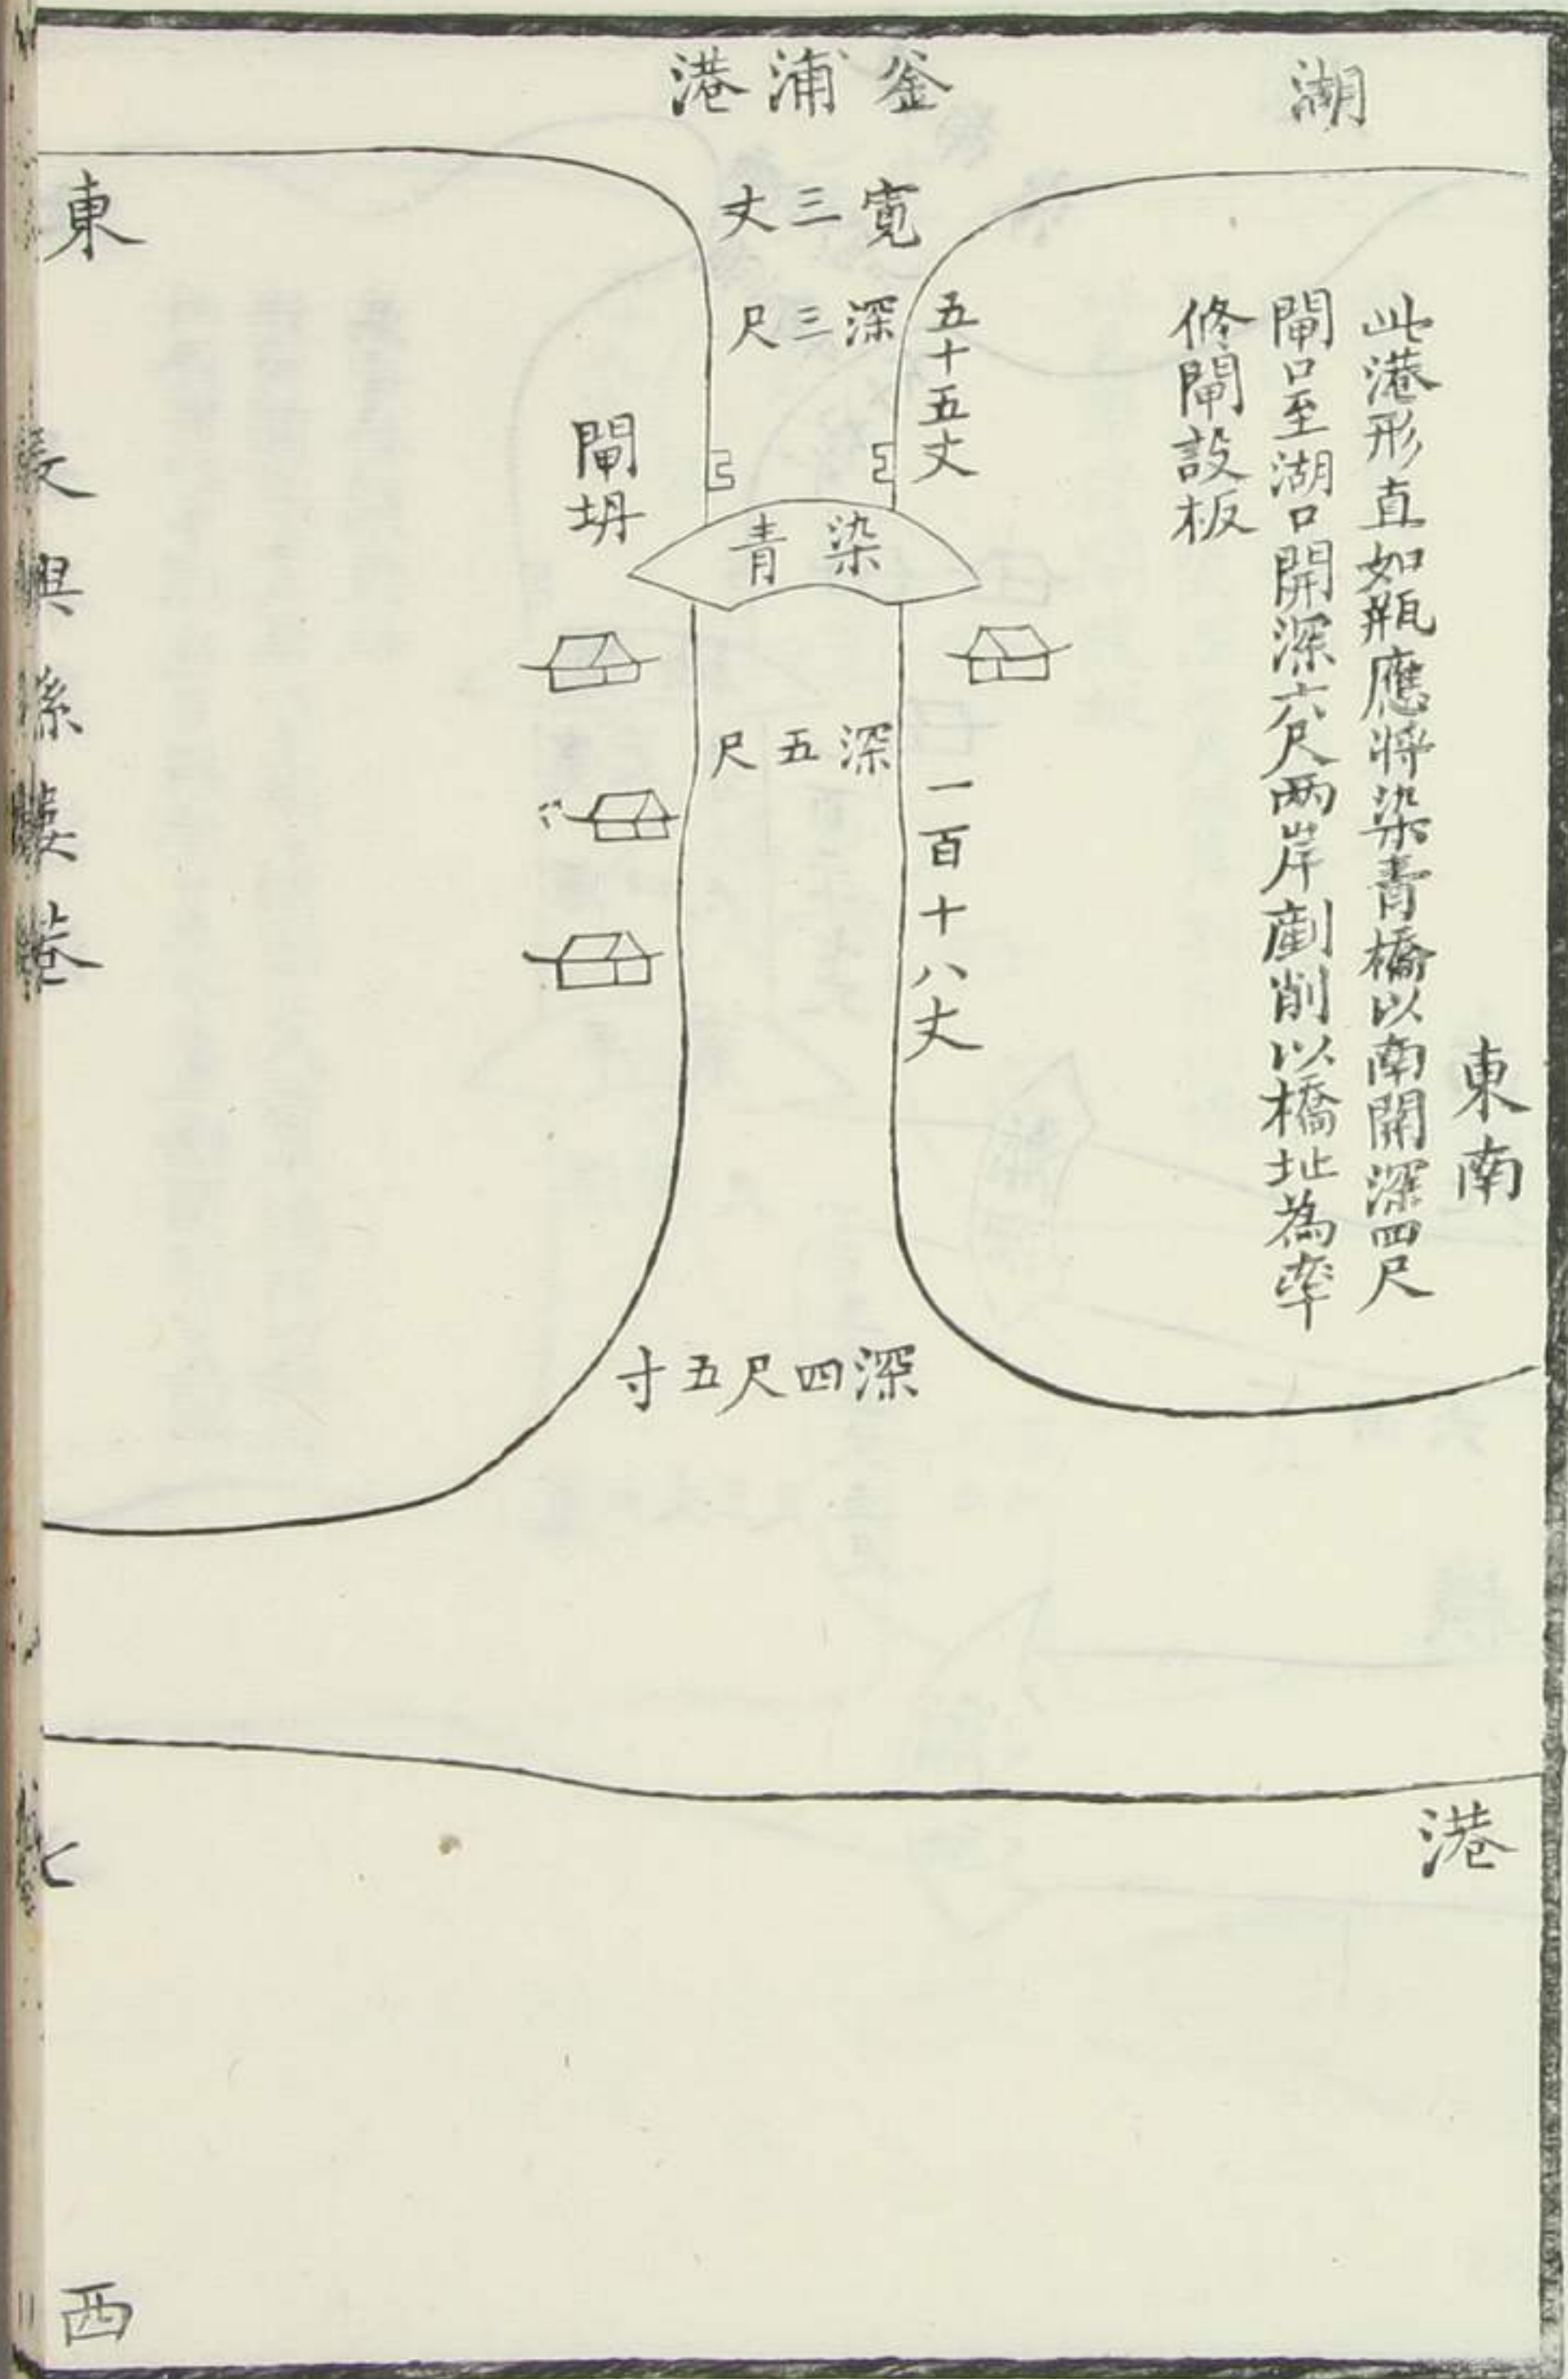 湖
釜浦港
東南
此港形直如瓶應將染青橋以南開深四尺
閘口至湖口開深六尺兩岸剷削以橋址為率
修閘設板
寬三丈
深三尺
五十五丈
閘坍
染青
深五尺
一百十八丈
深四尺五寸
港
東
西
長興縣婁港
七